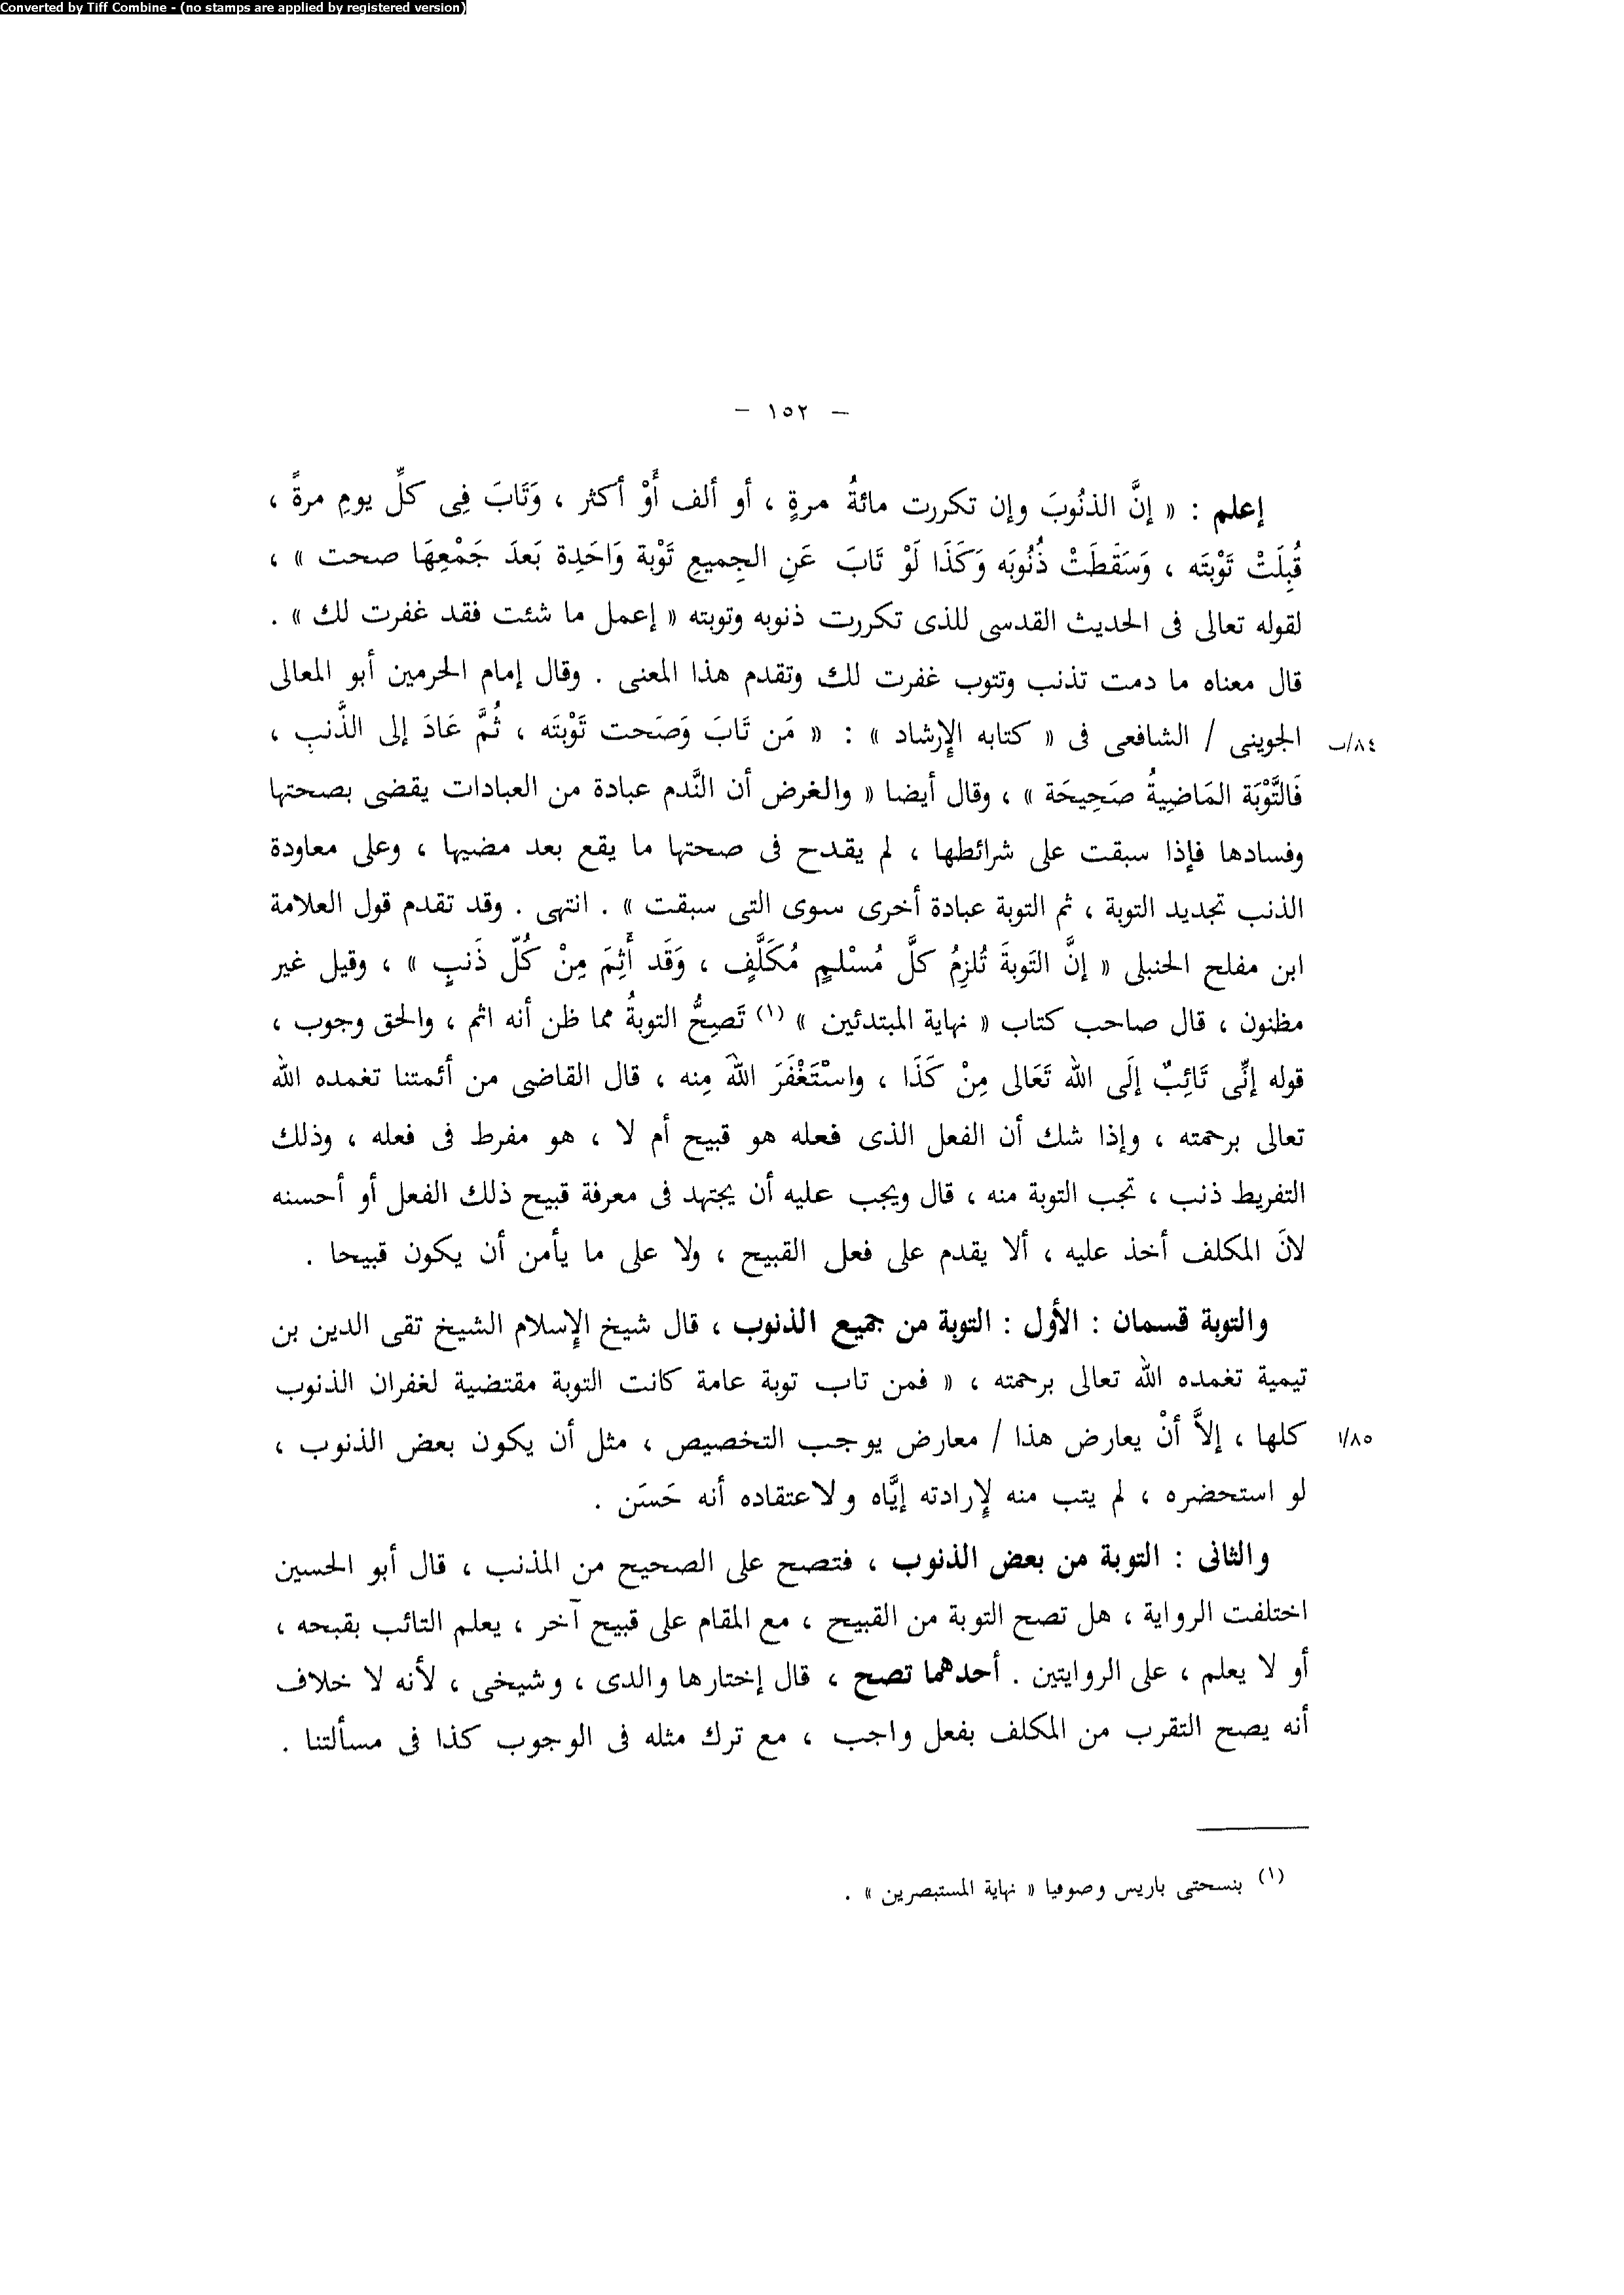 Converted by Tiff Combine - (no stamps are applied by registered version)
– ١٥٢ –
إعلم : « إنَّ الذنُوبَ وإن تكررت مائةُ مرةٍ ، أو ألف أَوْ أكثر ، وَتَابَ فِى كلِّ يومِ مرةً ،
قُبِلَتْ تَوْبتَه ، وَسَقَطَتْ ذُنُوبَه وَكَذَا لَوْ تَابَ عَنِ الجِميعِ تَوْبة وَاحَدِة بَعدَ جَمْعِهَا صحت » ،
لقوله تعالى فى الحديث القدسى للذى تكررت ذنوبه وتوبته « إعمل ما شئت فقد غفرت لك » .
قال معناه ما دمت تذنب وتتوب غفرت لك وتقدم هذا المعنى . وقال إمام الحرمين أبو المعالى
الجوينى / الشافعى فى « كتابه الإرشاد » : « مَن تَابَ وَصَحت تَوْبتَه ، ثُمَّ عَادَ إلى الذَّنبِ ،
٨٤/ب
فَالتَّوْبَة المَاضِيةُ صَحِيحَة » ، وقال أيضا « والغرض أن النَّدم عبادة من العبادات يقضى بصحتها
وفسادها فإذا سبقت على شرائطها ، لم يقدح فى صحتها ما يقع بعد مضيها ، وعلى معاودة
الذنب تجديد التوبة ، ثم التوبة عبادة أخرى سوى التى سبقت » . انتهى . وقد تقدم قول العلامة
ابن مفلح الحنبلى « إنَّ التَوبةَ تُلزِمُ كلَّ مُسْلمٍ مُكَلَّفٍ ، وَقَد أَثِمَ مِنْ كُلّ ذَنبٍ » ، وقيل غير
مظنون ، قال صاحب كتاب « نهاية المبتدئين » (١) تَصِحُّ التوبةُ مما ظن أنه اثم ، والحق وجوب ،
قوله إنِّى تَائِبٌ إلَى الله تَعَالى مِنْ كَذَا ، واسْتَغْفَرَ اللهَ مِنه ، قال القاضى من أئمتنا تغمده الله
تعالى برحمته ، وإذا شك أن الفعل الذى فعله هو قبيح أم لا ، هو مفرط فى فعله ، وذلك
التفريط ذنب ، تجب التوبة منه ، قال ويجب عليه أن يجتهد فى معرفة قبيح ذلك الفعل أو أحسنه
لانَ المكلف أخذ عليه ، ألا يقدم على فعل القبيح ، ولا على ما يأمن أن يكون قبيحا .
والتوبة قسمان : الأول : التوبة من جميع الذنوب ، قال شيخ الإسلام الشيخ تقى الدين بن
تيمية تغمده الله تعالى برحمته ، « فمن تاب توبة عامة كانت التوبة مقتضية لغفران الذنوب
كلها ، إلاَّ أنْ يعارض هذا / معارض يوجب التخصيص ، مثل أن يكون بعض الذنوب ،
٨٥/ا
لو استحضره ، لم يتب منه لإرادته إيَّاه ولاعتقاده أنه حَسَن .
والثانى : التوبة من بعض الذنوب ، فتصح على الصحيح من المذنب ، قال أبو الحسين
اختلفت الرواية ، هل تصح التوبة من القبيح ، مع المقام على قبيح آخر ، يعلم التائب بقبحه ،
أو لا يعلم ، على الروايتين . أحدهما تصح ، قال إختارها والدى ، وشيخى ، لأنه لا خلاف
أنه يصح التقرب من المكلف بفعل واجب ، مع ترك مثله فى الوجوب كذا فى مسألتنا .
(١) بنسحتى باريس وصوفيا « نهاية المستبصرين » .